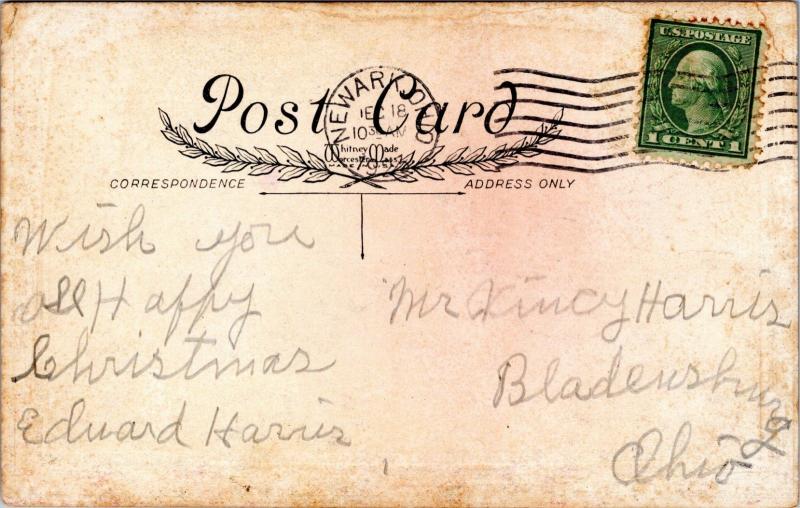 U.S. POSTAGE
1 CENT 1
NEWARK, OHIO
DEC 18
10 30 AM
Post Card
Whitney Made
Worcester, Mass
CORRESPONDENCE
ADDRESS ONLY
Wish you
all Happy
Christmas
Edward Harris
Mr Kincy Harris
Bladensburg
Ohio